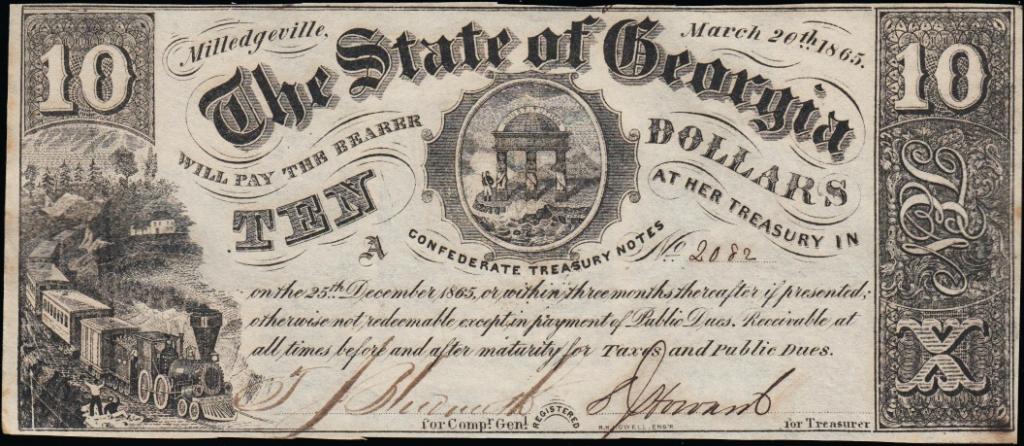 10
Milledgeville, March 20th 1865.
10
The State of Georgia
WILL PAY THE BEARER
TEN DOLLARS
AT HER TREASURY IN
A
CONFEDERATE TREASURY NOTES
No 2082
on the 25th December 1865, or within three months thereafter if presented;
otherwise not redeemable except in payment of Public Dues. Receivable at
all times before and after maturity for Taxes and Public Dues.
S J Howard
for Compt. Genl.
REGISTERED
R.H. HOWELL, ENG'R
for Treasurer
X